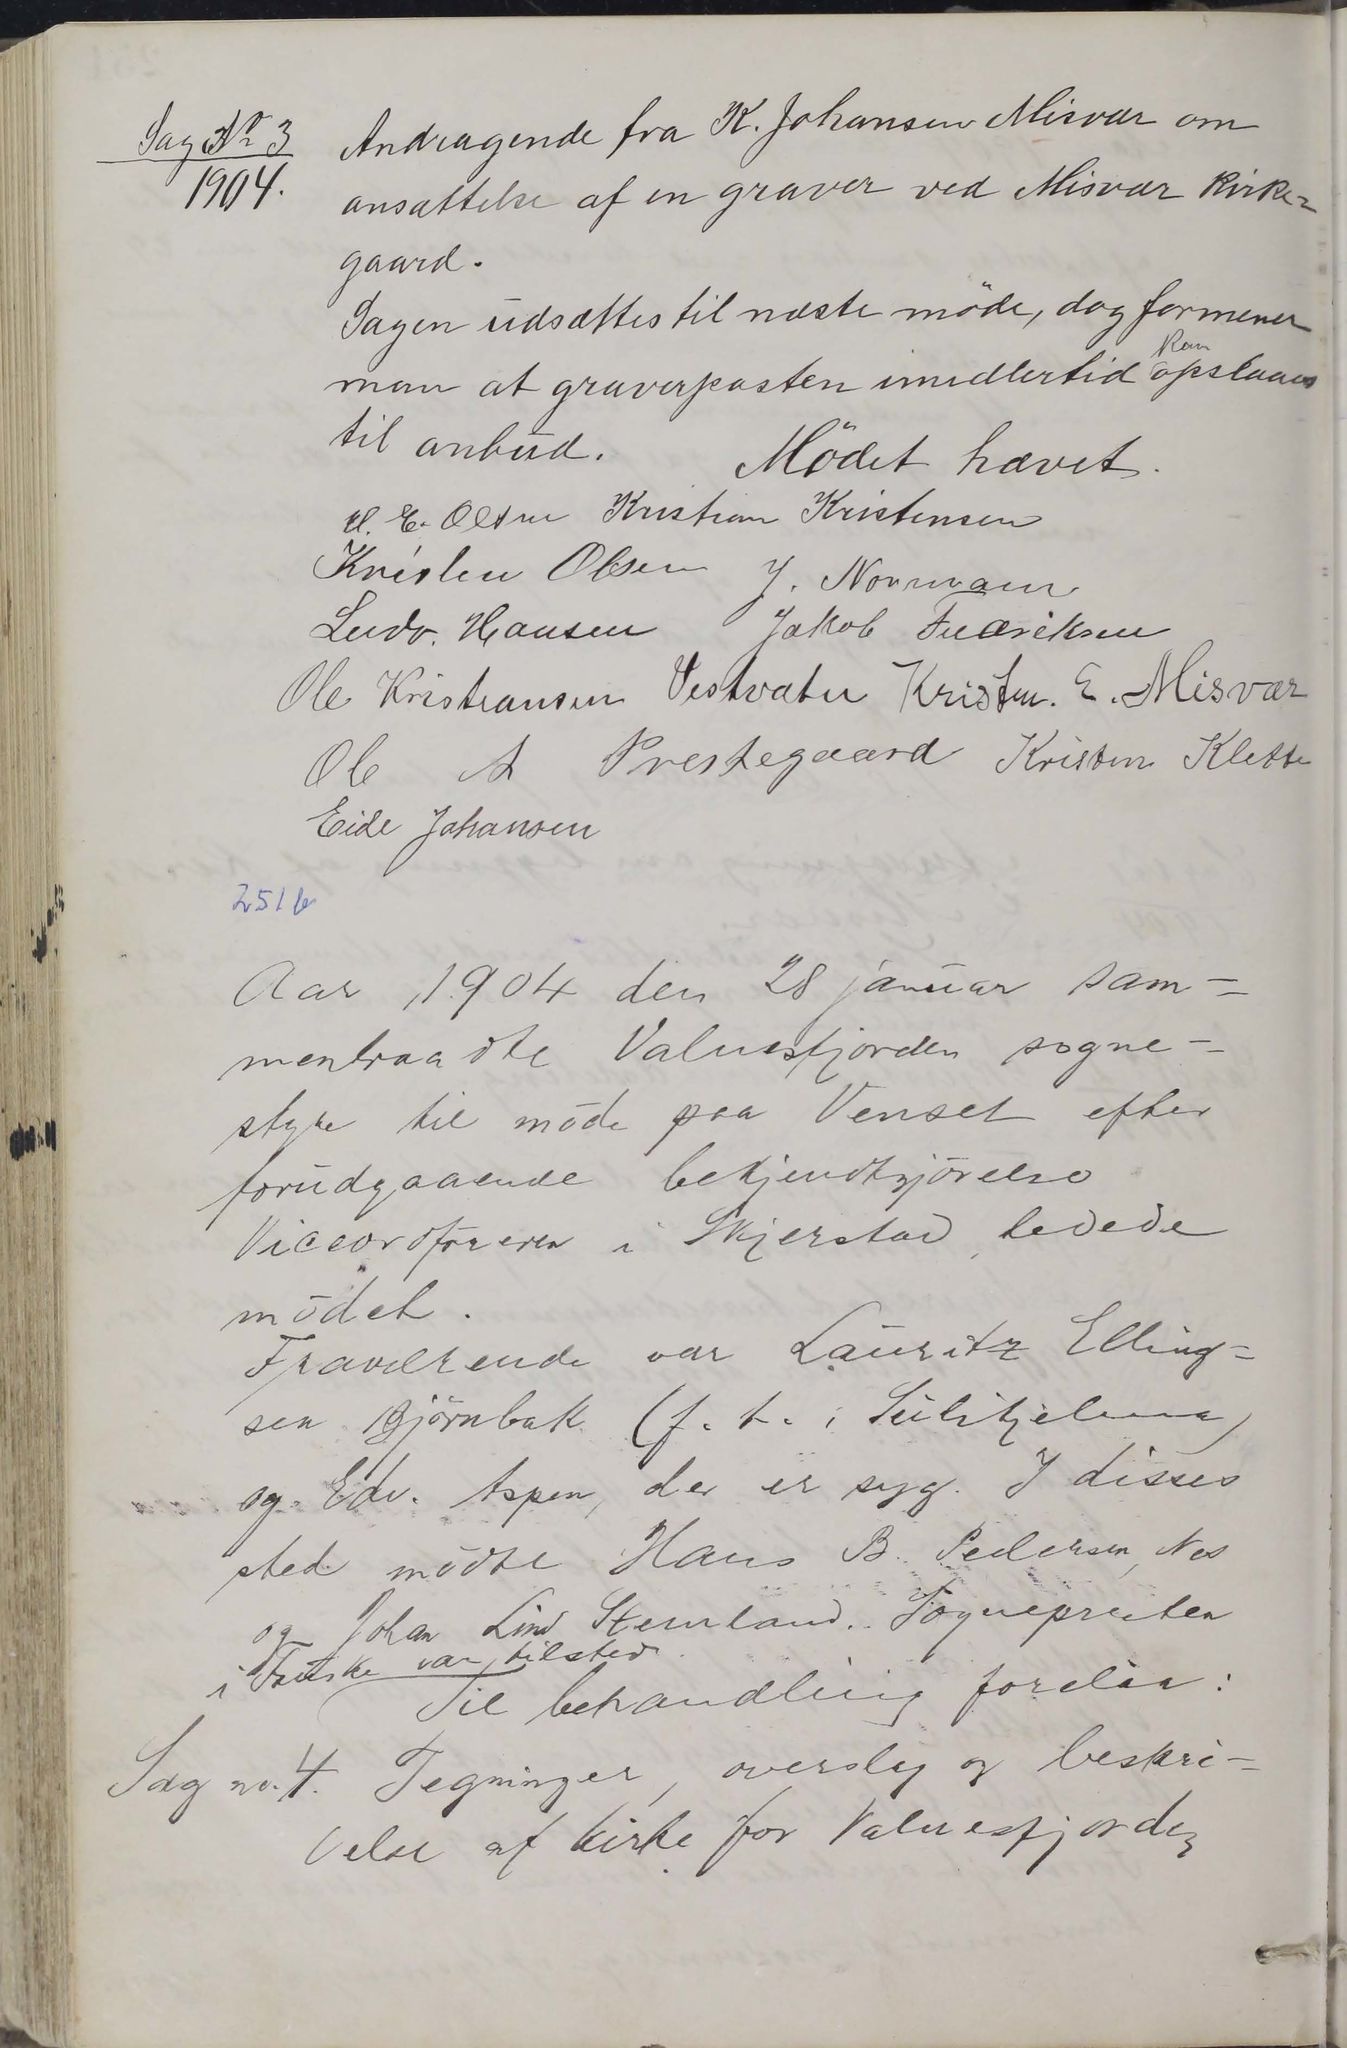 Sag No 3
1904.
Andragende fra K. Johansen Misvær om
ansættelse af en graver ved Misvær kirke-
gaard.
Sagen udsættes til næste möde, dog formener
man at graverposten imidlertid kan opslaaes
til anbud. Mödet hævet.
H. E. Olsen Kristian Kristensen
Kristen Olsen J. Normann
Ludv. Hansen Jakob Fredriksen
Ole Kristiansen Vestvatn Kristen. E. Misvær
Ole A Prestegaard Kristen Klette
Eide Johansen
251b
Aar 1904 den 28 januar sam-
mentraadte Valnesfjorden sogne-
styre til möde paa Venset efter
forudgaaende bekjendtgjörelse
Viceordföreren i Skjerstad ledede
mödet.
Fraværende var Lauritz Elling-
sen Björnbak (f. t. i Sulitjelma)
og Edv. Aspen, der er syg. I disses
sted mödte Hans B. Pedersen, Nes
og Johan Lind Stemland. Sognepresten
i Fauske var tilsted
Til behandling forelaa:
Sag no. 4. Tegninger, overslag og beskri-
velse af kirke for Valnesfjorden